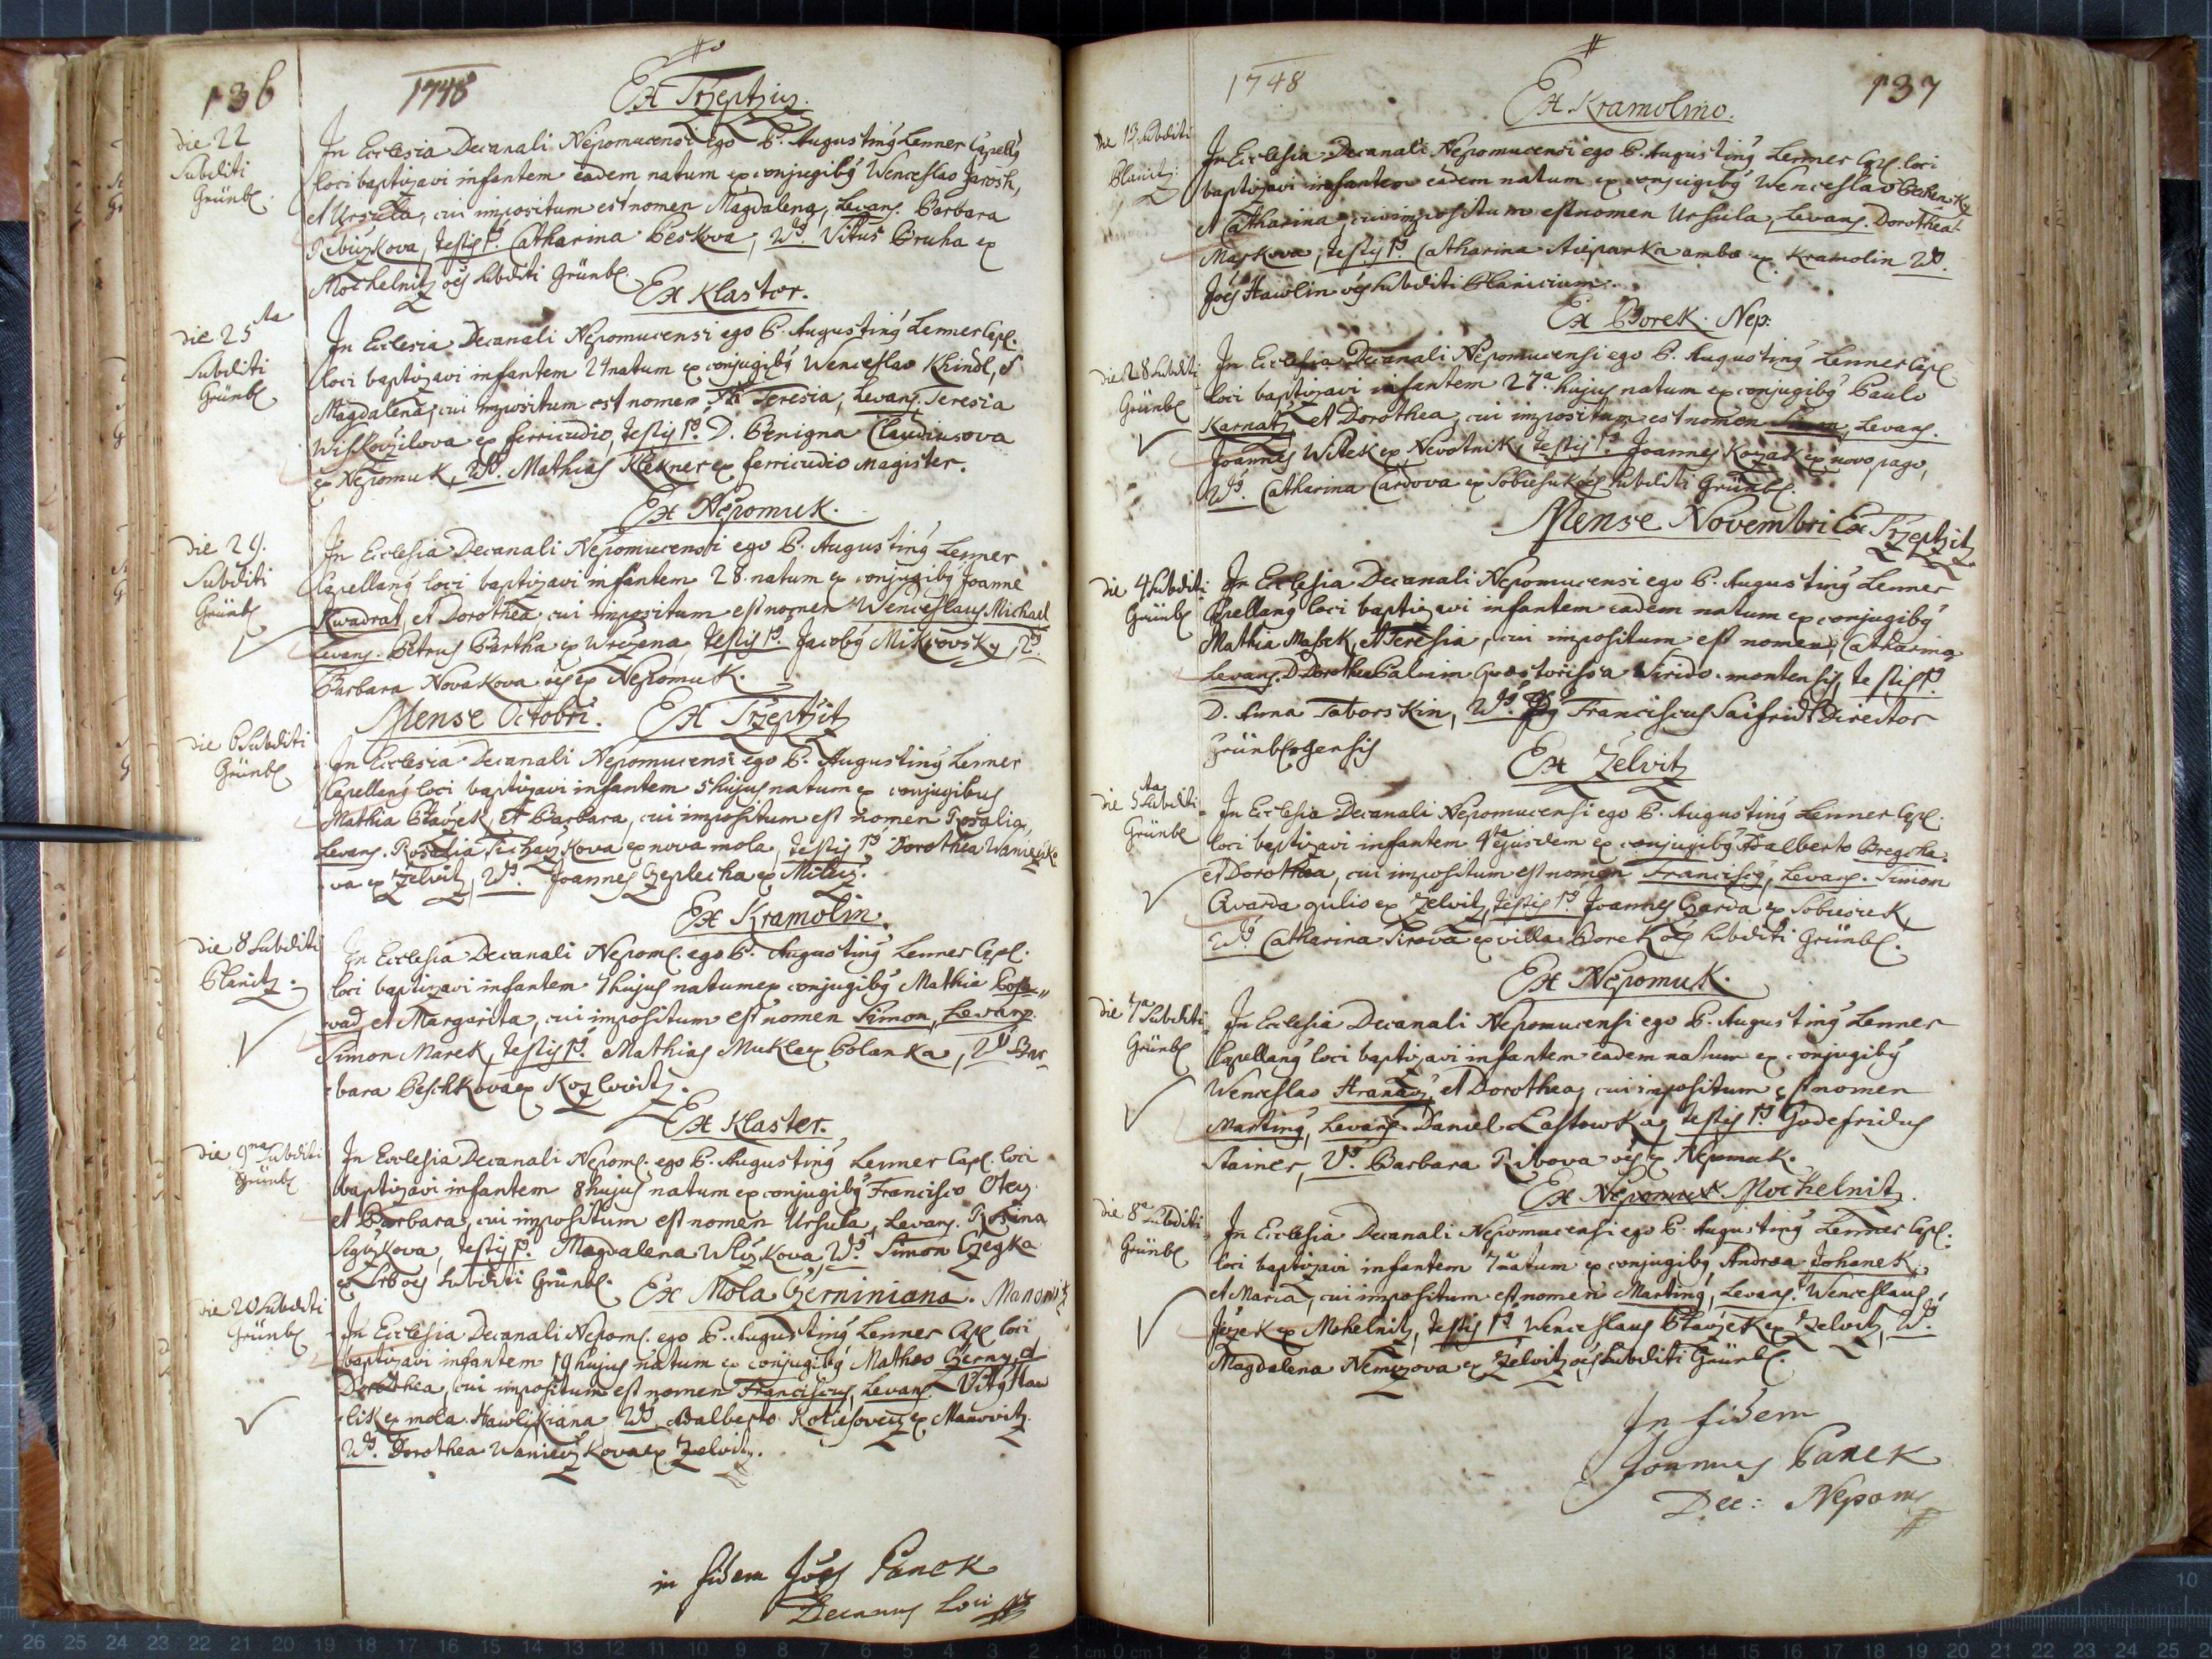 136
1748
Ex Trzeptziz.
die 22
Subditi
Grünb.
In Ecclesia Decanali Nepomucensi ego P. Augustinq Lenner Capellq
loci baptizavi infantem eadem natum ex conjugibq Wenceslao Jarosh,
et Ursula, cui impositum est nomen Magdalena, Levans. Barbara
testis 1s. Catharina Beskova, 2ds. Vitus Bruha ex
Mochelnitz oes subditi Grünb.
Ex Klaster.
die 25ta
Subditi
Grünb.
In Ecclesia Decanali Nepomucensi ego P. Augustinq Lenner Capl.
loci baptizavi infantem 24 natum ex conjugibq Wenceslao Khindl, et
Magdalena, cui impositum est nomen Teresia, Levans. Teresia
ex ferricudio, testis 1s. D. Benigna Claudiusova
ex Nepomuk, 2ds. Mathias Klekner ex ferricudio magister.
Ex Nepomuk.
die 29.
Subditi
Grünb.
In Ecclesia Decanali Nepomucensi ego P. Augustinq Lenner
Capellanq loci baptizavi infantem 28. natum ex conjugibq Joanne
Kwadrat, et Dorothea cui impositum est nomen Wenceslaus Michael
Levans. Petrus Bartha ex testis 1s. Jacobq Mikzovsky, 2ds.
Barbara Novakova oes ex Nepomuk.
Mense Octobri. Ex Trzeptzitz
die 6 Subditi
Grünb.
In Ecclesia Decanali Nepomucensi ego P. Augustinq Lenner
Capellanq loci baptizavi infantem 5 hujus natum ex conjugibus
Mathia Blazek, et Barbara, cui impositum est nomen Rosalia,
Levans. Rosalia ex nova mola, testis 1s. Dorothea Waniczko
va ex Zelvitz, 2ds. Joannes Czeplecha ex
Ex Kramolin.
die 8 Subditi
Planitz.
In Ecclesia Decanali Nepom. ego P. Augustinq Lenner Capl.
loci baptizavi infantem 7 hujus natum ex conjugibq Mathia
wad, et Margarita, cui impositum est nomen Simon, Levans.
Simon Marek, testis 1s. Mathias Mukl ex Polanka, 2ds Bar
bara Beschkova ex Kozlovitz.
Ex Klaster.
die 9na Subditi
Grünb.
In Ecclesia Decanali Nepom. ego P. Augustinq Lenner Capl. loci
baptizavi infantem 8 hujus natum ex conjugibq Francisco
et Barbara, cui impositum est nomen Ursula, Levans. Rosina
testis 1s. Magdalena 2ds. Simon Czegka
ex oes subditi Grünb.
Ex Mola Czerniniana. Manowitz
die 20 Subditi
Grünb.
In Ecclesia Decanali Nepom. ego P. Augustinq Lenner Capl loci
baptizavi infantem 19 hujus natum ex conjugibq Matheo Czerny, et
Dorothea, cui impositum est nomen Franciscus, Levans. Vitq Haw
lik ex mola Hawlikiana, Adalberto ex Manovitz.
2ds. Dorothea Waniczkova ex Zelvitz.
in fidem Joes Panek
Decanus Loci
1748
137
Ex Kramolino.
die 13 Subditi
Planitz.
In Ecclesia Decanali Nepomucensi ego P. Augustinq Lenner Capl. loci
baptizavi infantem eadem natum ex conjugibq Wenceslao
et Catharina, cui impositum est nomen Ursula, Levans. Dorothea
Maskova, testis 1s. Catharina ambae ex Kramolin 2ds.
Joes Hawlin oes subditi Planicium.
Ex Borek. Nep:
die 28 Subditi
Grünb.
In Ecclesia Decanali Nepomucensi ego P. Augustinq Lenner Capl.
loci baptizavi infantem 27a. hujus natum ex conjugibq Paulo
Karnatz, et Dorothea, cui impositum est nomen Simon, Levans.
Joannes Witek ex Nevotnik, testis 1s. Joannes Kozak ex novo pago,
2ds. Catharina Cardova ex Sobiesuk oes subditi Grünb.
Mense Novembri Ex Trzeptzitz
die 4 Subditi
Grünb
In Ecclesia Decanali Nepomucensi ego P. Augustinq Lenner
Capellanq loci baptizavi infantem eadem natum ex conjugibq
Mathia Masek, et Teresia, cui impositum est nomen Catharina,
Levans. D. Dorothea Balvim Viridomontensis, testis 1s.
D. Anna Taborskin, 2ds. Franciscus Saifridt Director
Grünbergensis
Ex Zelvitz
die 5ta Subditi
Grünb
In Ecclesia Decanali Nepomucensi ego P. Augustinq Lenner Capl.
loci baptizavi infantem 4ta ejusdem ex conjugibq Adalberto
et Dorothea, cui impositum est nomen Franciscq, Levans. Simon
Qvarda ex Zelvitz, testis 1s. Joannes Czarda ex Sobiesuk,
2ds Catharina ex villa Borek oes subditi Grünb.
Ex Nepomuk.
die 7a Subditi
Grünb
In Ecclesia Decanali Nepomucensi ego P. Augustinq Lenner
Capellanq loci baptizavi infantem eadem natum ex conjugibq
Wenceslao et Dorothea, cui impositum est nomen
Martinq, Levans. Daniel Lastowka, testis 1s. Godefridus
Stainer, 2ds. Barbara Ribova oes ex Nepomuk.
Ex Nepomuk Mochelnitz.
die 8a Subditi
Grünb
In Ecclesia Decanali Nepomucensi ego P. Augustinq Lenner Capl.
loci baptizavi infantem 7 natum ex conjugibq Andrea Johanek,
et Maria, cui impositum est nomen Martinq, Levans. Wenceslaus
Jezek ex Mohelnitz, testis 1s. Wenceslaus Blazek ex Zelvitz, 2ds.
Magdalena Nemczova ex Zelvitz oes subditi Grünb.
In fidem
Joannes Panek
Dec: Nepom